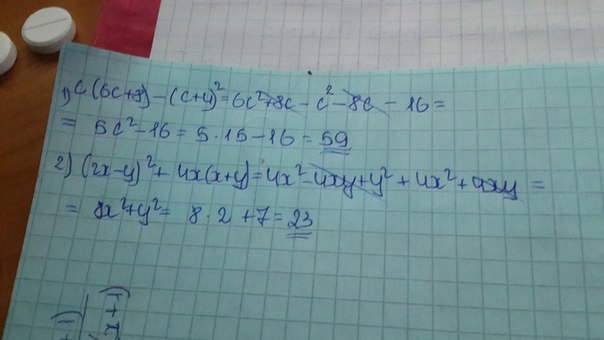 1) c(6c+8) - (c+4)² = 6c² + 8c - c² - 8c - 16 =
= 5c² - 16 = 5 · 15 - 16 = 59
2) (2x-y)² + 4x(x+y) = 4x² - 4xy + y² + 4x² + 4xy =
= 8x² + y² = 8 · 2 + 7 = 23